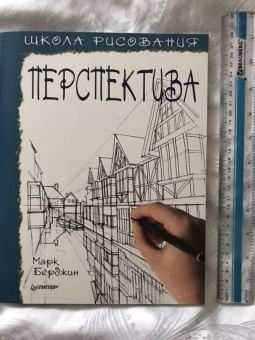 ШКОЛА РИСОВАНИЯ
ПЕРСПЕКТИВА
Марк
Бёрджин
ПИТЕР
BRAUBERG